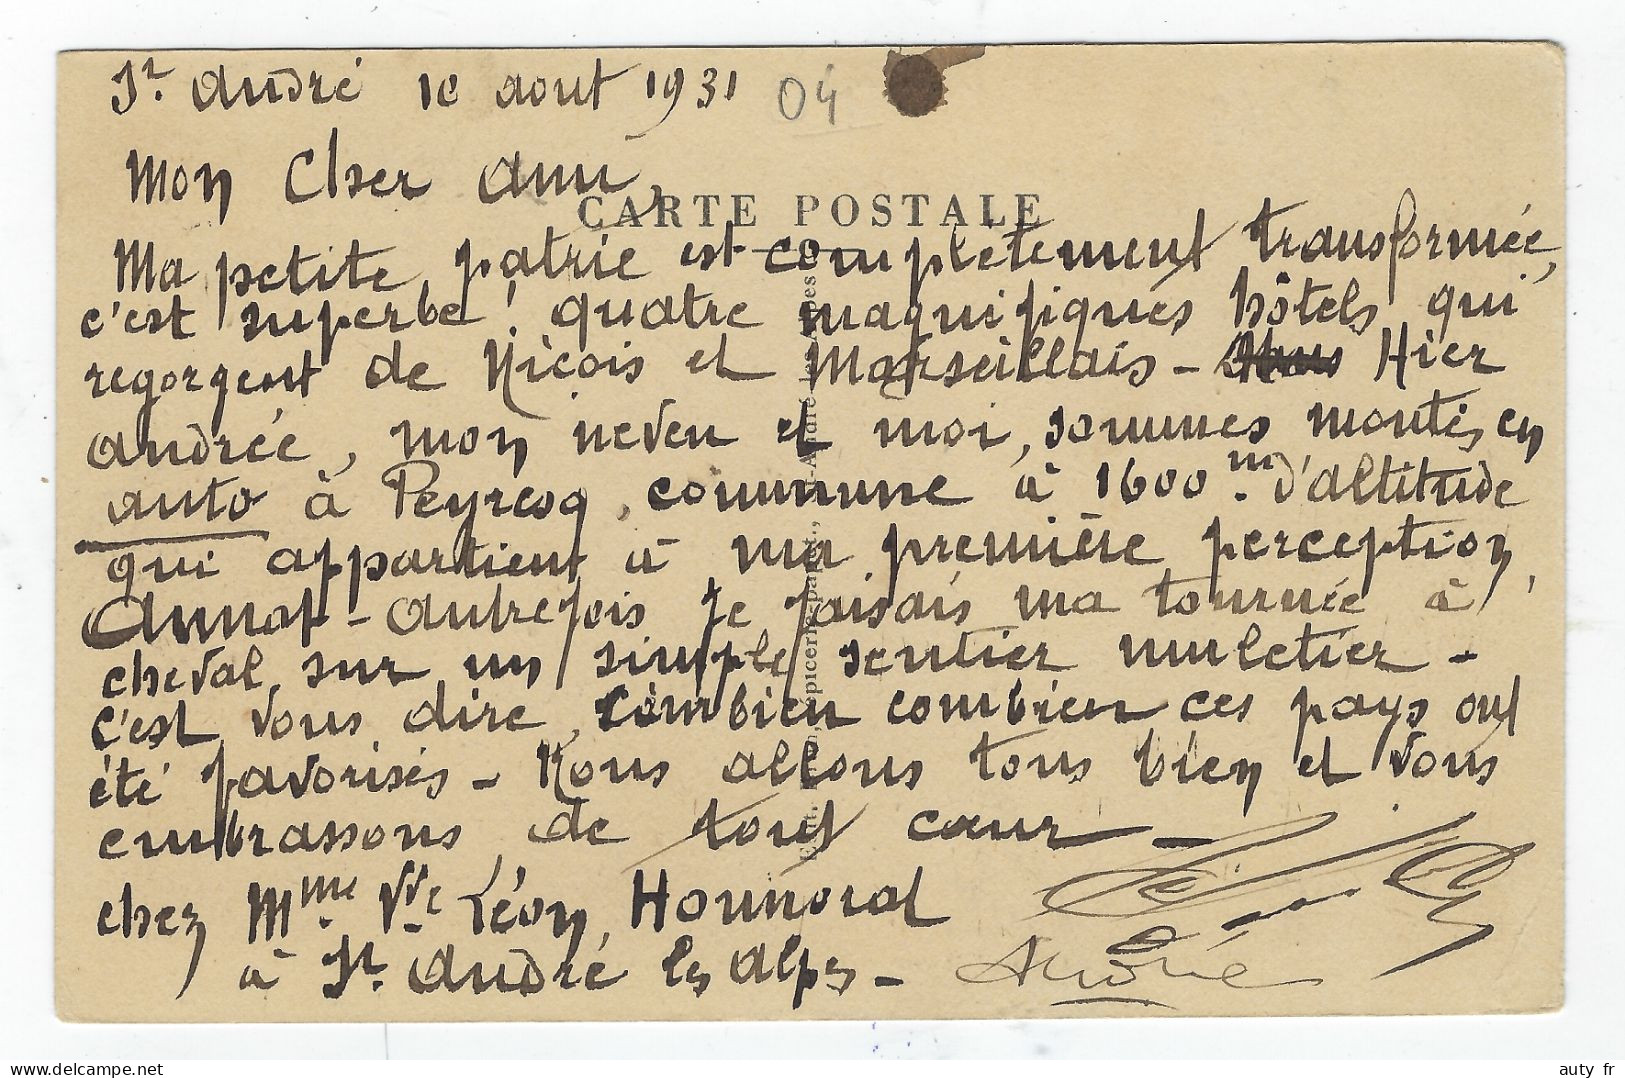 St. André 10 aout 1931
04
Mon Cher Ami,
CARTE POSTALE
Ma petite patrie est complètement transformée,
c'est superbe ! quatre magnifiques hôtels qui
regorgent de Niçois et Marseillais - Hier
Andrée, mon neveu et moi, sommes montés en
auto à Peyresq, commune à 1600 m. d'altitude
qui appartient à ma première perception,
Annot - Autrefois je faisais ma tournée à
cheval sur un simple sentier muletier -
c'est vous dire, combien combien ces pays ont
été favorisés - Nous allons tous bien et vous
embrassons de tout cœur -
chez Mme Vve Léon Honnorat
à St. André les Alpes -
Andrée
épicerie-papet., St-André-les-Alpes
auty fr